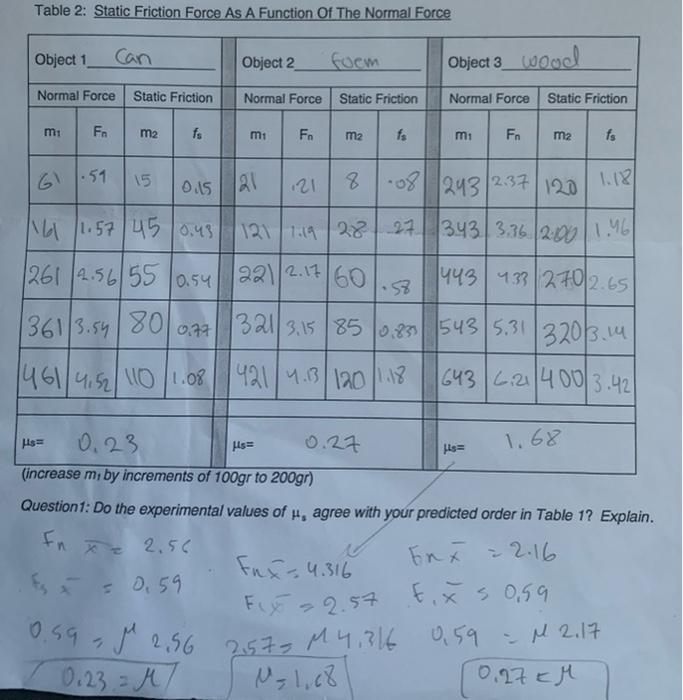 Table 2: Static Friction Force As A Function Of The Normal Force
Object 1 Can Object 2 foem Object 3 wood
Normal Force Static Friction Normal Force Static Friction Normal Force Static Friction
m₁ Fn m₂ fs m₁ Fn m₂ fs m₁ Fn m₂ fs
61 .59 15 0.15 21 .21 8 .08 243 2.37 120 1.18
161 1.57 45 0.43 121 1.19 28 .27 343 3.36 200 1.96
261 2.56 55 0.54 221 2.17 60 .58 443 4.33 270 2.65
361 3.54 80 0.77 321 3.15 85 543 5.31 320 3.14
461 4.52 110 1.08 421 4.13 120 1.18 643 6.21 400 3.42
μs= 0.23 μs= 0.27 μs= 1.68
(increase m₁ by increments of 100gr to 200gr)
Question1: Do the experimental values of μs agree with your predicted order in Table 1? Explain.
Fn x̄ = 2.56 Fn x̄ = 4.316 Fn x̄ = 2.16
Fs x̄ = 0.59 x̄ = 2.57 x̄ = 0.59
0.59 = μ 2.56 2.57 = μ 4.316 0.59 = μ 2.17
0.23 = μ μ = 1.68 0.27 = μ